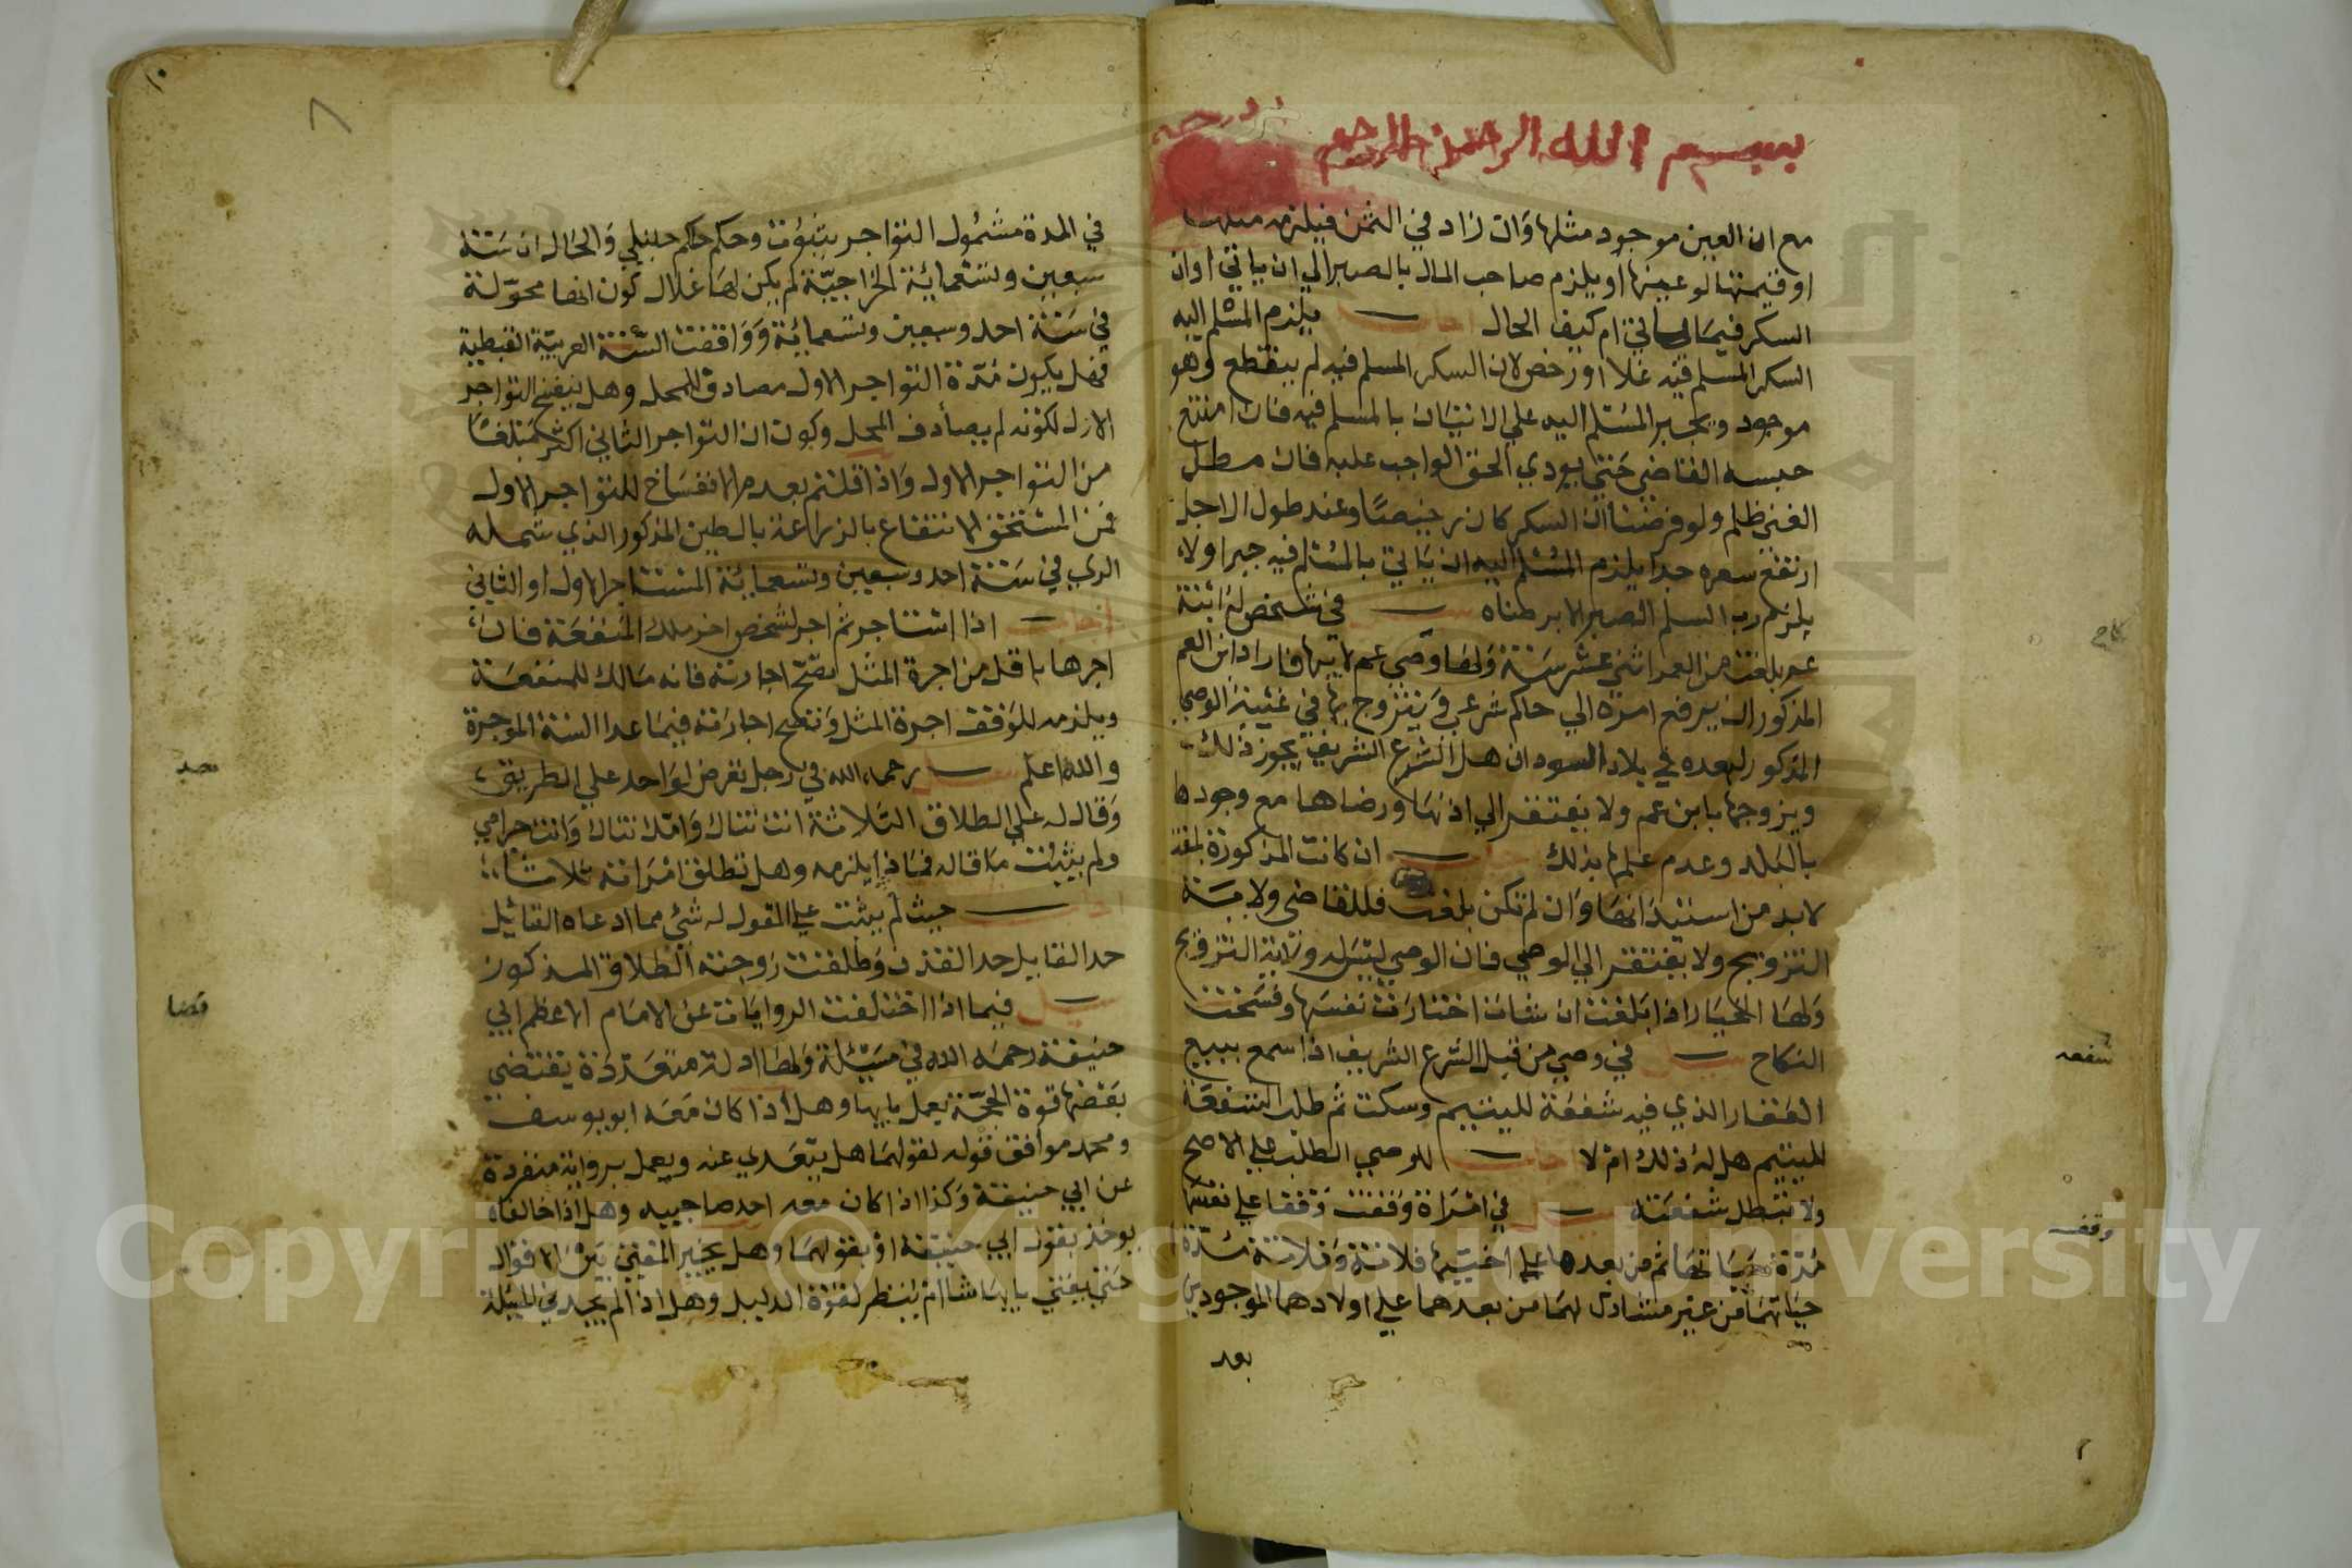 بسم الله الرحمن الرحيم
مع ان العين موجود مثلها وان زاد في الثمن فيلزمه مثلها
او قيمتها لو عينها او يلزم صاحب المال بالصبر الي ان ياتي اوان
السكر فيما ياتي ام كيف الحال اجاب يلزم المسلم اليه
السكر المسلم فيه غلا او رخص لان السكر المسلم فيه لم ينقطع وهو
موجود ويجبر المسلم اليه علي الاتيان بالمسلم فيه فان امتنع
حبسه القاضي حتي يودي الحق الواجب عليه فان مطل
الغني ظلم ولو فرضنا ان السكر كان رخيصا وعند طول الاجل
ارتفع سعره جدا يلزم المسلم اليه ان ياتي بالمسلم فيه جبرا ولا
يلزم رب السلم الصبر الا برضاه سيل في شخص له ابنة
عم بلغت من العمر اثني عشر سنة ولها وصي عم لابيها فاراد ابن العم
المذكور ان يرفع امره الي حاكم شرعي ويتزوج بها في غيبة الوصي
المذكور لبعده في بلاد السودان هل الشرع الشريف يجوز ذلك
ويزوجها بابن عم ولا يفتقر الي اذنها ورضاها مع وجودها
بالبلد وعدم علمها بذلك اجاب ان كانت المذكورة بلغت
لابد من استيذانها وان لم تكن بلغت فللقاضي ولاية
التزويج ولا يفتقر الي الوصي فان الوصي ليس له ولاية التزويج
ولها الخيار اذا بلغت ان شات اختارت نفسها وفسخت
النكاح سيل في وصي من قبل الشرع الشريف اذا سمع ببيع
العقار الذي فيه شفعة لليتيم وسكت ثم طلب الشفعة
لليتيم هل له ذلك ام لا اجاب للوصي الطلب علي الاصح
ولا تبطل شفعته سيل في امراة وقفت وقفا علي نفسها
مدة حياتها ثم من بعدها علي اختيها فلانة وفلانة مدة
حياتهما من غير مشارك لهما من بعدهما علي اولادهما الموجودين
بعد
شفعه
وقف
١٠
٨
في المدة مشمول التواجر بثبوت وحكم حاكم حنبلي والحال ان سنة
سبعين وتسعمائة الخراجية لم يكن لها غلال كون انها محولة
في سنة احد وسبعين وتسعمائة ووافقت السنة العربية القبطية
فهل يكون مدة التواجر الاول مصادف المحل وهل ينفسخ التواجر
الاول لكونه لم يصادف المحل وكون ان التواجر الثاني اكثر مبلغا
من التواجر الاول واذا قلتم بعدم الانفساخ للتواجر الاول
فمن المستحق الانتفاع بالزراعة بالطين المذكور الذي شمله
الري في سنة احد وسبعين وتسعمائة المستاجر الاول او الثاني
اجاب اذا استاجر ثم اجر لشخص اخر ملك المنفعة فان
اجرها باقل من اجرة المثل تصح اجارته فانه مالك للمنفعة
ويلزمه للوقف اجرة المثل وتصح اجارته فيما عدا السنة الموجرة
والله اعلم سيل رحمه الله في رجل تعرض لواحد علي الطريق
وقال له علي الطلاق الثلاثة انت نتاك وامك نتاك وانت حرامي
ولم يثبت ما قاله فماذا يلزمه وهل تطلق امراته ثلاثا
اجاب حيث لم يثبت علي المقول له شي مما ادعاه القائيل
حد القايل حد القذف وطلقت زوجته الطلاق المذكور
سيل فيما اذا اختلفت الروايات عن الامام الاعظم ابي
حنيفة رحمه الله في مسيلة ولها ادلة متعددة يقتضي
بعضها قوة الحجة يعمل بايها وهل اذا كان معه ابو يوسف
ومحمد موافق قوله لقولهما هل يتعدي عنه ويعمل برواية منفردة
عن ابي حنيفة وكذا اذا كان معه احد صاحبيه وهل اذا خالفاه
يوخذ بقول ابي حنيفة او بقولهما وهل يخير المفتي بين الاقوال
حتي يفتي بايها شا ام ينظر لقوة الدليل وهل اذا لم يجد في المسيلة
قضا
Copyright © King Saud University